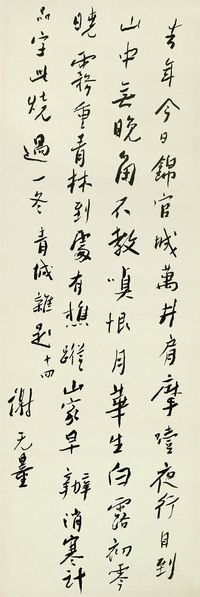 去年今日錦官城萬井肩摩夜行自到
山中無晚角不教嗔恨月華生白露初零
曉霧重青林到處有樵蹤山家早辦消寒計
品字柴燒過一冬青城雜題十四
謝无量